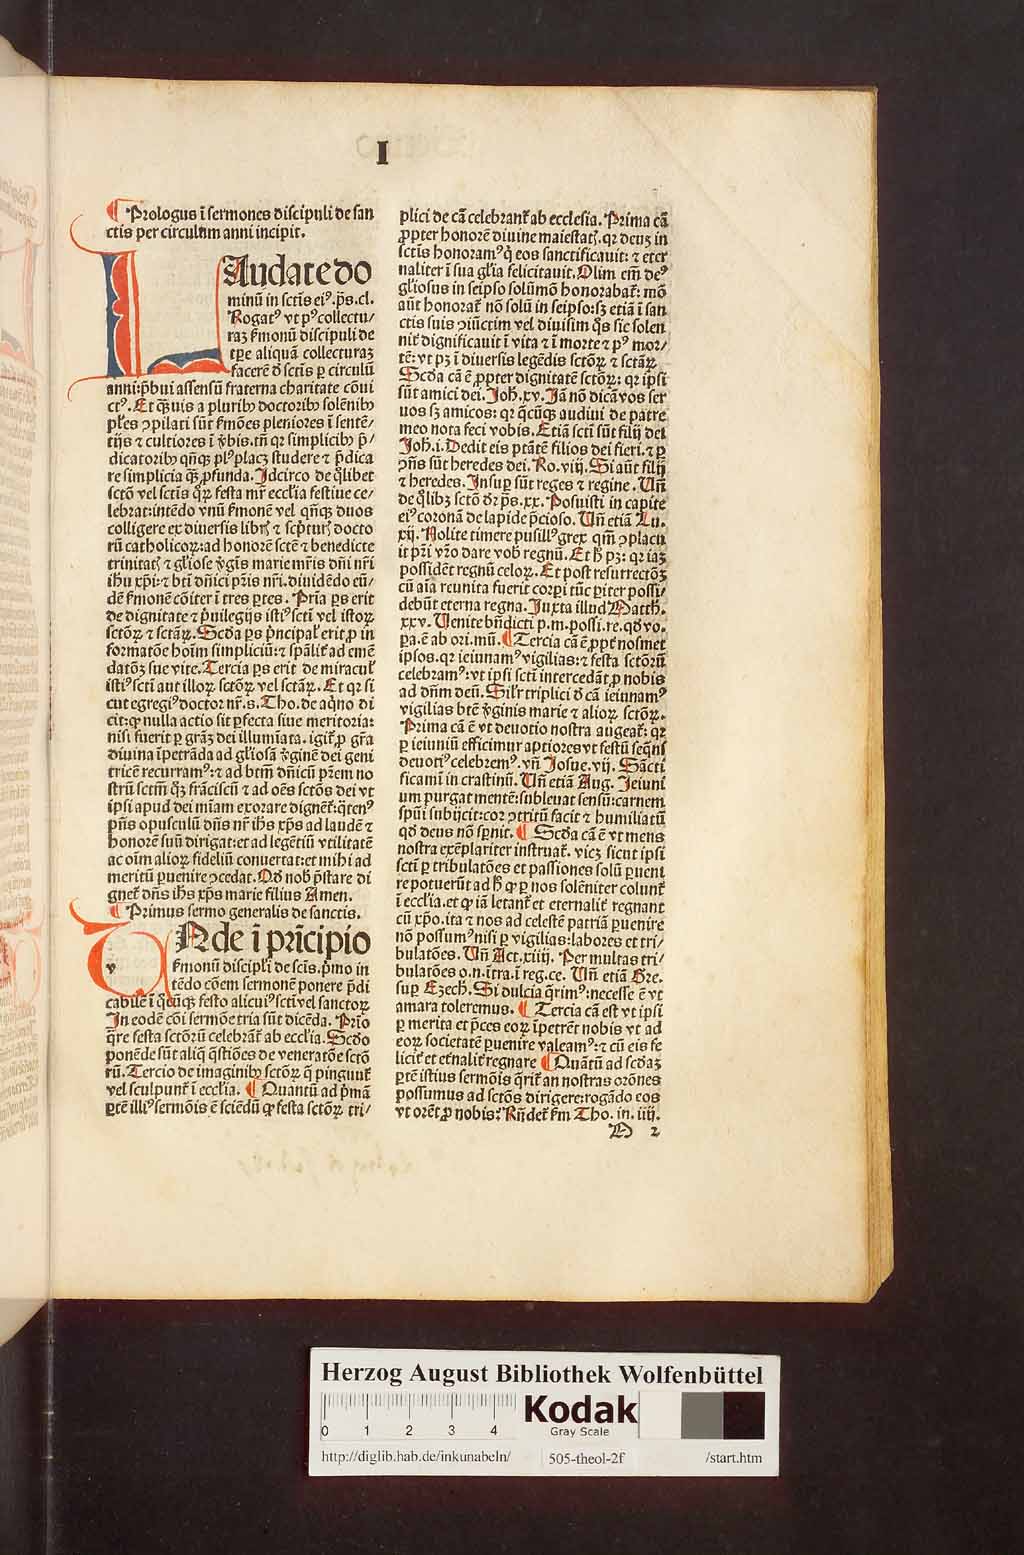 I
¶ Prologus ī sermones discipuli de san
ctis per circulum anni incipit.
LAudate do
minū in sctīs ei⁹. p̄s. cl.
Rogat⁹ vt p⁹ collectu⸗
raꝫ ẜmonū discipuli de
tp̄e aliquā collecturaꝫ
facerē d̄ sctis ꝑ circulū
anni: p̄bui assensū fraterna charitate cōui
ct⁹. Et q̄͂uis a pluribꝰ doctoribꝰ solēnibꝰ
pl̄es ꝯpilati sūt ẜmōes pleniores ī sentē⸗
tijs ⁊ cultiores ī v̄bis. tn̄ qr simplicibꝰ p̄⸗
dicatoribꝰ qn̄qꝫ pl⁹ placꝫ studere ⁊ p̄dica
re simplicia q̄ꝫ ꝓfunda. Jdcirco de q̄libet
sctō vel sctīs q̄ꝝ festa mr̄ eccl̄ia festiue ce⸗
lebrat: intēdo vnū ẜmonē vel qn̄qꝫ duos
colligere ex diuersis libꝝ ⁊ scp̄turꝭ docto
rū catholicoꝝ: ad honorē sctē ⁊ benedicte
trinitatꝭ ⁊ gl̄iose v̄gīs marie mr̄is dn̄i nr̄i
ihū xp̄i: ⁊ btī dn̄ici pr̄is nr̄i. diuidēdo eū⸗
dē ẜmonē cōiter ī tres ꝑtes. Pr̄ia ꝑs erit
de dignitate ⁊ p̄uilegijs isti⁹ sctī vel istoꝝ
sctōꝝ ⁊ sctāꝝ. Scd̄a ꝑs p̄ncipal̓ erit ꝓ in
formatōe hoīm simpliciū: ⁊ sp̄alit̓ ad emē
datōꝫ sue vite. Tercia ꝑs erit de miracul̓
isti⁹ sctī aut illoꝝ sctōꝝ vel sctāꝝ. Et qr si
cut egregi⁹ doctor nr̄. s. Tho. de aq̄no di
cit: ꝙ nulla actio sit ꝑfecta siue meritoria:
nisi fuerit ꝑ grāꝫ dei illumīata. igit̓ ꝓ gr̄a
diuina īpetrāda ad gl̄iosā v̄ginē dei geni
tricē recurram⁹: ⁊ ad btm̄ dn̄icū pr̄em no
strū sctm̄ q̄ꝫ frāciscū ⁊ ad oēs sctōs dei vt
ipsi apud dei mīam exorare dignēt̓: q̄ten⁹
p̄ns opusculū dn̄s nr̄ ihs xp̄s ad laudē ⁊
honorē suū dirigat: et ad legētiū vtilitatē
ac oīm alioꝝ fideliū conuertat: et mihi ad
meritū ꝑuenire ꝯcedat. Qd̄ nob̄ p̄stare di
gnet̓ dn̄s ihs xp̄s marie filius Amen.
¶ Primus sermo generalis de sanctis.
VNde ī prīcipio
ẜmonū discipl̄i de scīs. p̄mo in
tēdo cōem sermonē ponere p̄di
cabilē ī q̄cūqꝫ festo alicui⁹ sctī vel sanctoꝝ
Jn eodē cōi sermōe tria sūt dicēda. Prīo
q̄re festa sctōrū celebrāt̓ ab eccl̄ia. Scd̄o
ponēde sūt aliq̄ q̄stiōes de veneratōe sctō
rū. Tercio de imaginibꝰ sctōꝝ q̄ pinguut̓
vel sculpunt̓ ī eccl̄ia. ¶ Quantū ad p̄mā
ꝑtē illi⁹ sermōis ē sciēdū ꝙ festa sctōꝝ tri⸗
plici de cā celebrant̓ ab ecclesia. Prima cā
ꝓpter honorē diuine maiestatꝭ. qr deuꝫ in
sctīs honoram⁹ q̄ eos sanctificauit: ⁊ eter
naliter ī sua gl̄ia felicitauit. Olim em̄ de⁹
gl̄iosus in seipso solūmō honorabat̓: mō
aūt honorat̓ nō solū in seipso: sꝫ etiā ī san
ctis suis ꝯiūctim vel diuisim q̄s sic solen
nit̓ dignificauit ī vita ⁊ ī morte ⁊ p⁹ mor⸗
tē: vt pꝫ ī diuersis legēdis sctōꝝ ⁊ sctāꝝ.
Scd̄a cā ē ꝓpter dignitatē sctōꝝ: qr ipsi
sūt amici dei. Joh̄. xv. Jā nō dicā vos ser
uos sꝫ amicos: qr q̄cūqꝫ audiui de patre
meo nota feci vobis. Etiā sctī sūt filij dei
Joh̄. i. Dedit eis ptātē filios dei fieri. ⁊ ꝑ
ꝯn̄s sūt heredes dei. Ro. viij. Si aūt filij
⁊ heredes. Jnsuꝑ sūt reges ⁊ regine. Vn̄
de q̄libꝫ sctō dr̄ p̄s. xx. Posuisti in capite
ei⁹ coronā de lapide p̄cioso. Vn̄ etiā Lu.
xij. Nolite timere pusill⁹ grex qm̄ ꝯplacu
it pr̄i vr̄o dare vob̄ regnū. Et h̄ pꝫ: qr iaꝫ
possidēt regnū celoꝝ. Et post resurrectōꝫ
cū aīa reunita fuerit corpi tūc ꝑiter possi⸗
debūt eterna regna. Juxta illud Matth̄.
xxv. Venite bn̄dicti p. m. possi. re. qd̄ vo.
pa. ē ab ori. mū. ¶ Tercia cā ē ꝓpt̓ nosmet
ipsos. qr ieiunam⁹ vigilias: ⁊ festa sctōrū
celebram⁹: vt ipsi sctī intercedāt ꝓ nobis
ad dn̄m deū. Sil̓r triplici d̄ cā ieiunam⁹
vigilias btē v̄ginis marie ⁊ alioꝝ sctōꝝ.
Prima cā ē vt deuotio nostra augeat̓: qr
ꝑ ieiuniū efficimur aptiores vt festū seq̄ns
deuoti⁹ celebrem⁹. vn̄ Josue. vij. Sācti
ficamī in crastinū. Vn̄ etiā Aug. Jeiuni
um purgat mentē: subleuat sensū: carnem
spūi subijcit: cor ꝯtritū facit ⁊ humiliatū
qd̄ deus nō sꝑnit. ¶ Scd̄a cā ē vt mens
nostra exēplariter instruat̓. viꝫ sicut ipsi
sctī ꝑ tribulatōes et passiones solū ꝑueni
re potuerūt ad h̄ ꝙ ꝑ nos solēniter colunt̓
ī eccl̄ia. et ꝙ iā letant̓ et eternalit̓ regnant
cū xp̄o. ita ⁊ nos ad celestē patriā ꝑuenire
nō possum⁹ nisi ꝑ vigilias: labores et tri⸗
bulatōes. Vn̄ Act. xiiij. Per multas tri⸗
bulatōes o. n. ītra. ī reg. ce. Vn̄ etiā Gre.
suꝑ Ezech̄. Si dulcia q̄rim⁹: necesse ē vt
amara toleremus. ¶ Tercia cā est vt ipsi
ꝑ merita et p̄ces eoꝝ īpetrēt nobis vt ad
eoꝝ societatē ꝑuenire valeam⁹: ⁊ cū eis fe
licit̓ et et̓nalit̓ regnare ¶ Quātū ad scd̄aꝫ
ꝑtē istius sermōis q̄rit̓ an nostras orōnes
possumus ad sctōs dirigere: rogādo eos
vt orēt ꝓ nobis? Rn̄det̓ ẜm Tho. in. iiij.
A 2
Herzog August Bibliothek Wolfenbüttel
0 1 2 3 4
Kodak
Gray Scale
http://diglib.hab.de/inkunabeln/ 505-theol-2f /start.htm